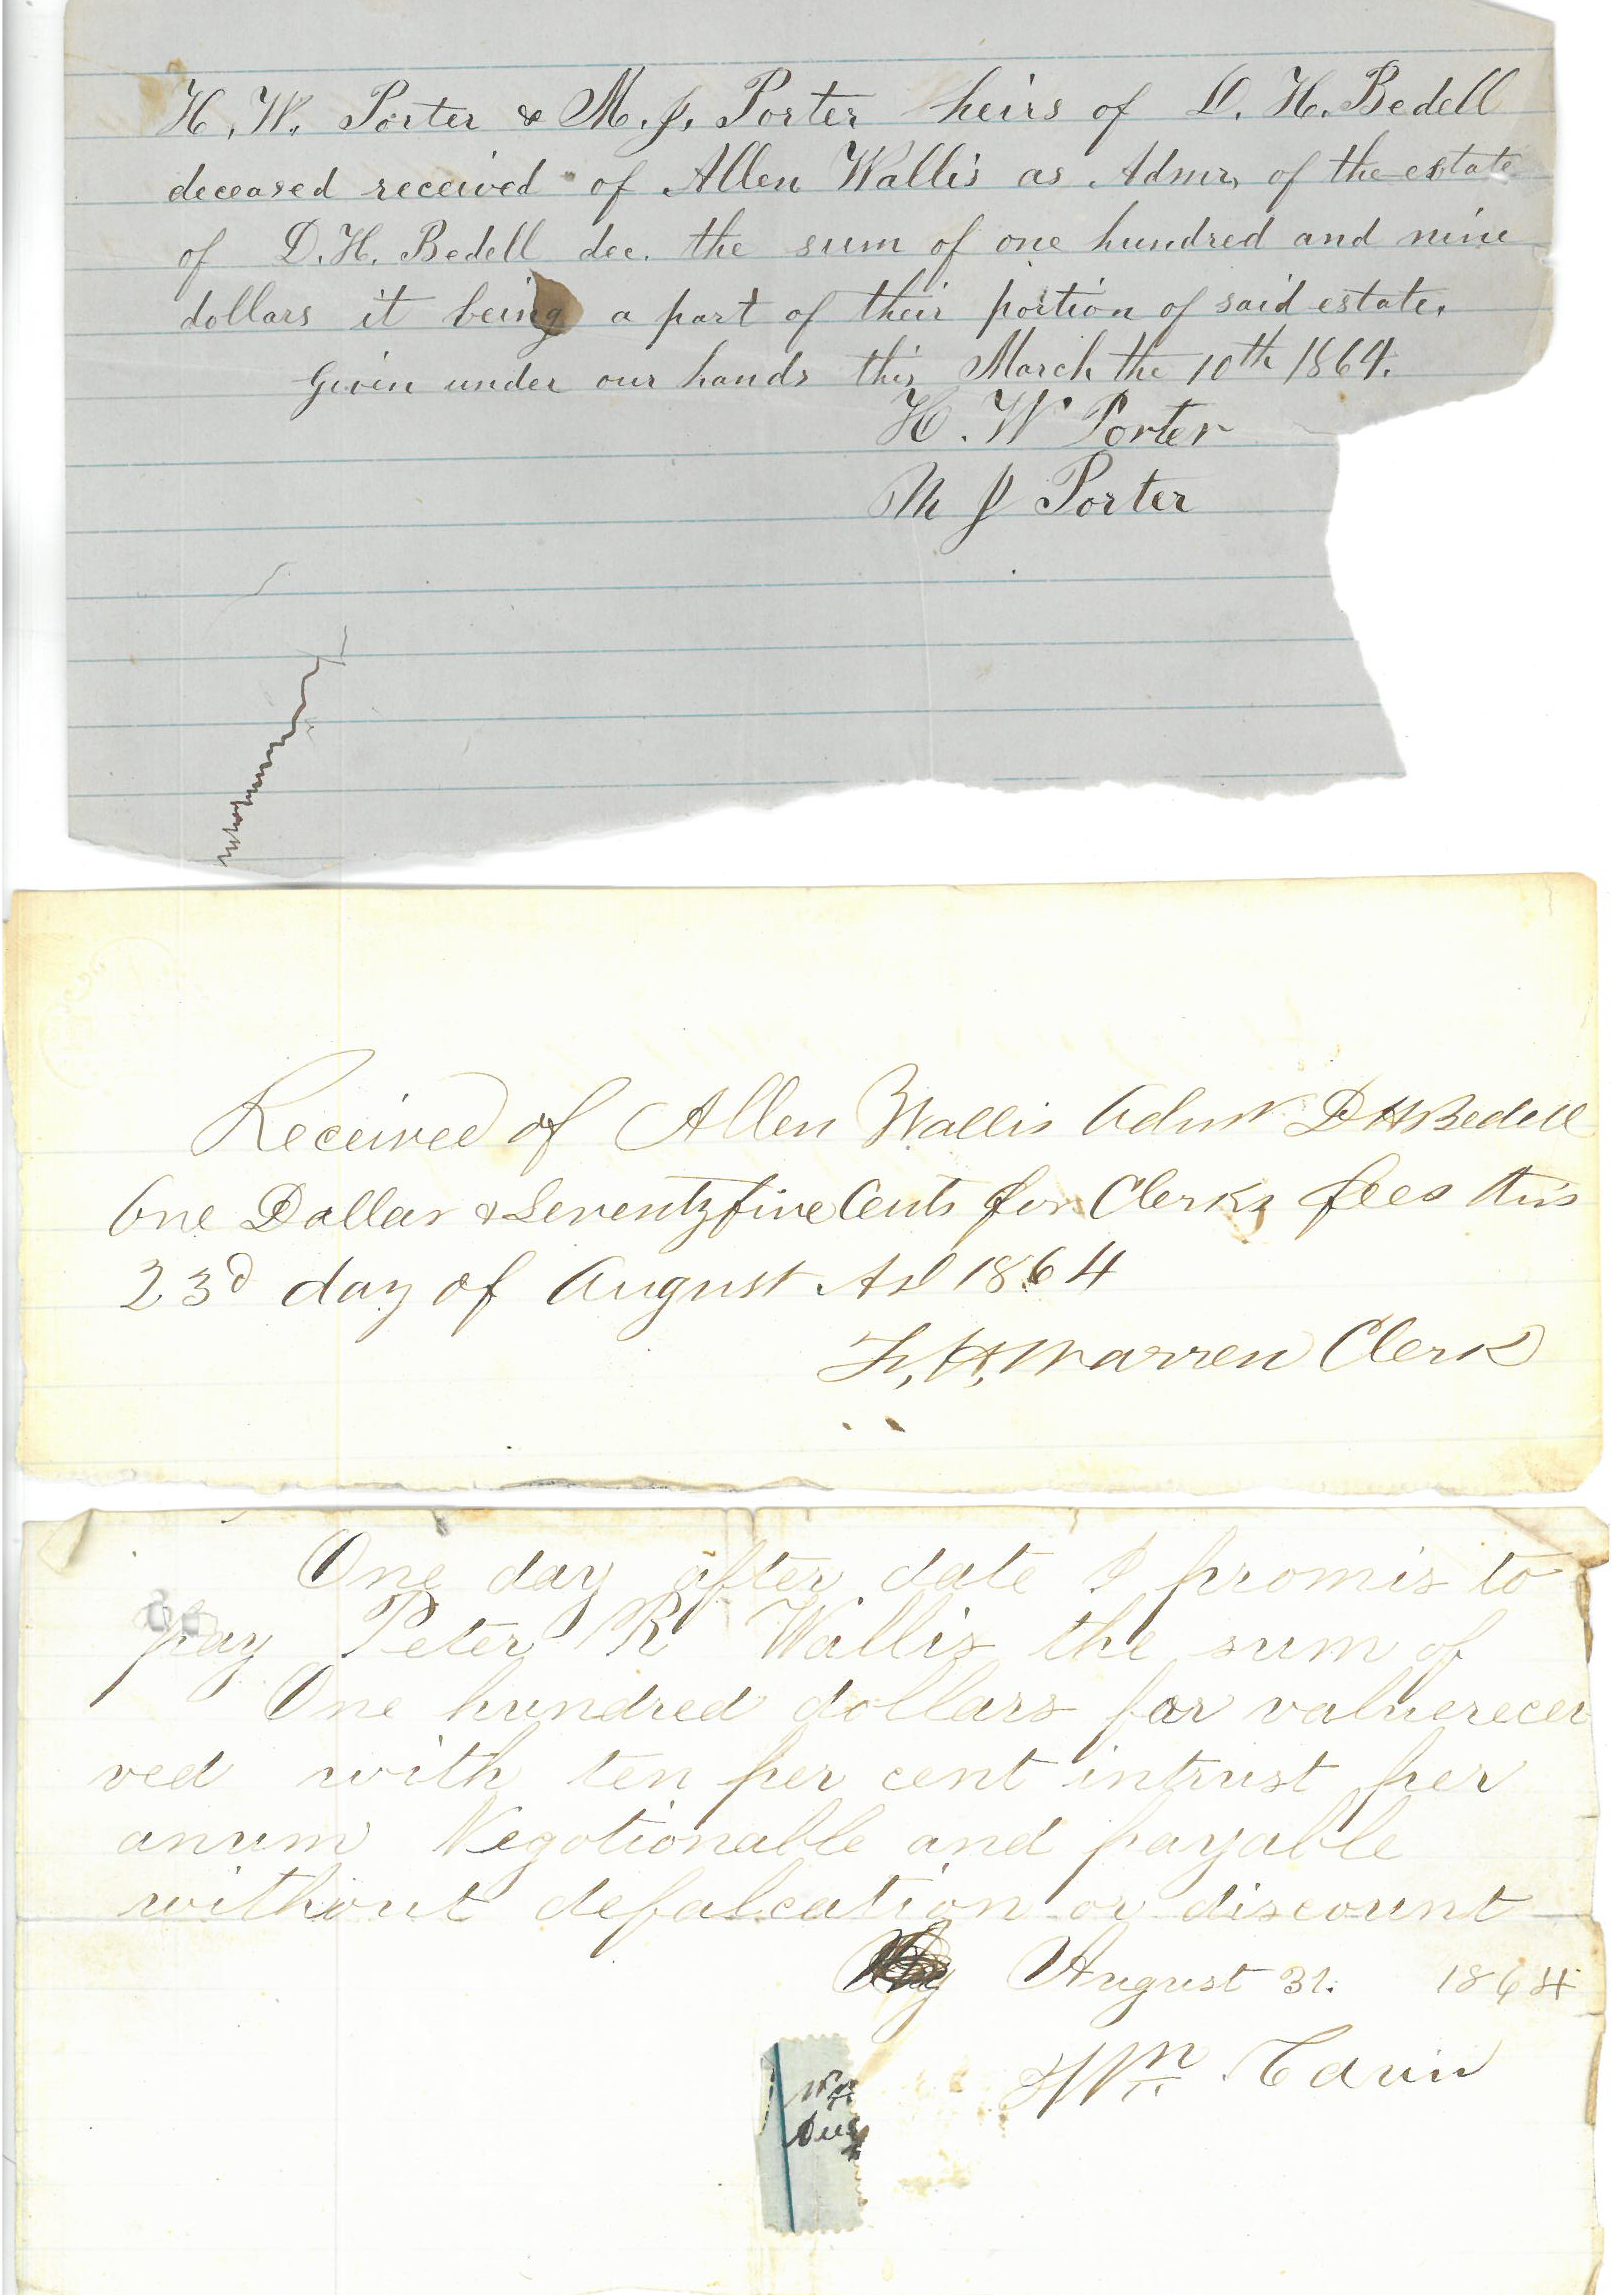 H. W. Porter & M. J. Porter heirs of D. H. Bedell
deceased received of Allen Wallis as Admr, of the estate
of D. H. Bedell dec. the sum of one hundred and nine
dollars it being a part of their portion of said estate.
Given under our hands this March the 10th 1864.
H. W Porter
M J Porter
Received of Allen Wallis Admr D H Bedell
One Dollar & Seventy five Cents for Clerks fees this
23d day of August AD 1864
H. Warren Clerk
One day after date I promis to
pay Peter R Wallis the sum of
One hundred dollars for valuerecei
ved with ten per cent intrust per
anum Negotionable and payable
without defalcation or discount
August 31. 1864
Wm
Aug